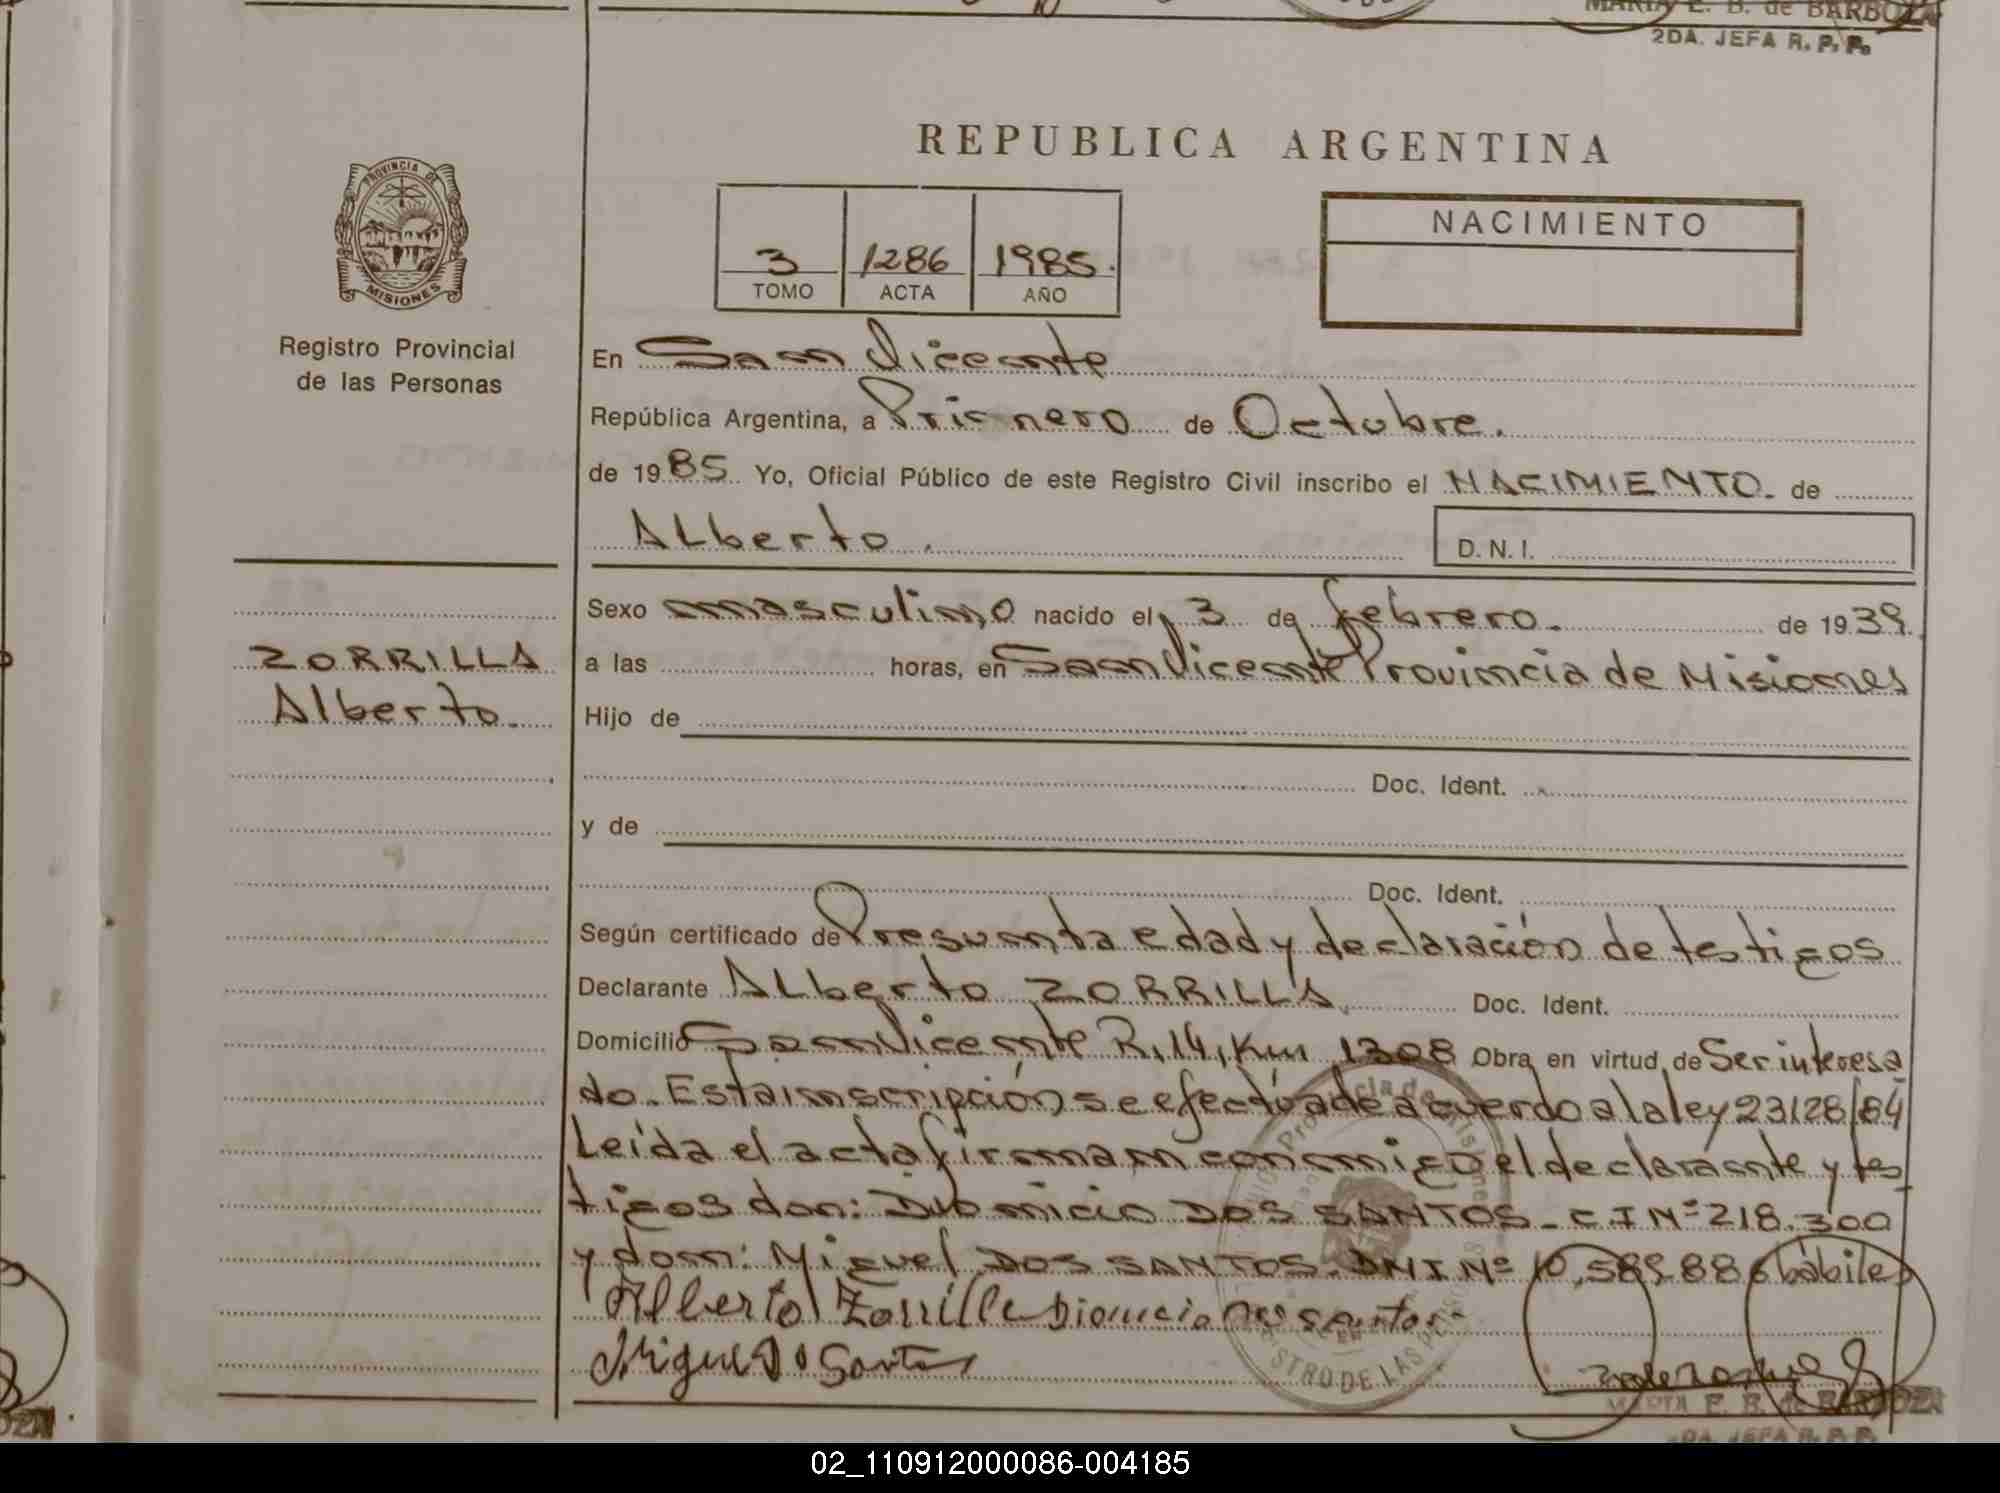 MARIA E. B. de BARBOZA
2DA. JEFA R. P. P.
REPUBLICA ARGENTINA
PROVINCIA DE
MISIONES
Registro Provincial
de las Personas
3 1286 1985.
TOMO ACTA AÑO
NACIMIENTO
En San Vicente
República Argentina, a Primero de Octubre.
de 1985 Yo, Oficial Público de este Registro Civil inscribo el NACIMIENTO. de
ALberto. D. N. I.
ZORRILLA
Alberto.
Sexo masculino nacido el 3 de febrero. de 1939.
a las horas, en San Vicente Provincia de Misiones
Hijo de
Doc. Ident.
y de
Doc. Ident.
Según certificado de Presunta edad y declaración de testigos
Declarante ALberto ZORRILLA Doc. Ident.
Domicilio San Vicente R. 14, Km 1308 Obra en virtud de Ser interesa
do. Esta inscripción se efectúa de acuerdo a la ley 23128/84
Leida el acta firman conmigo el declarante y tes
tigos don: Dionicio DOS SANTOS - C I Nº 218.300
y don: Miguel DOS SANTOS. DNI Nº 10.589.886 hábiles
Alberto Zorrilla Dionicio dos santos
Miguel D Santos
MARTA E. B. de BARBOZA
2DA. JEFA R. P. P.
02_110912000086-004185